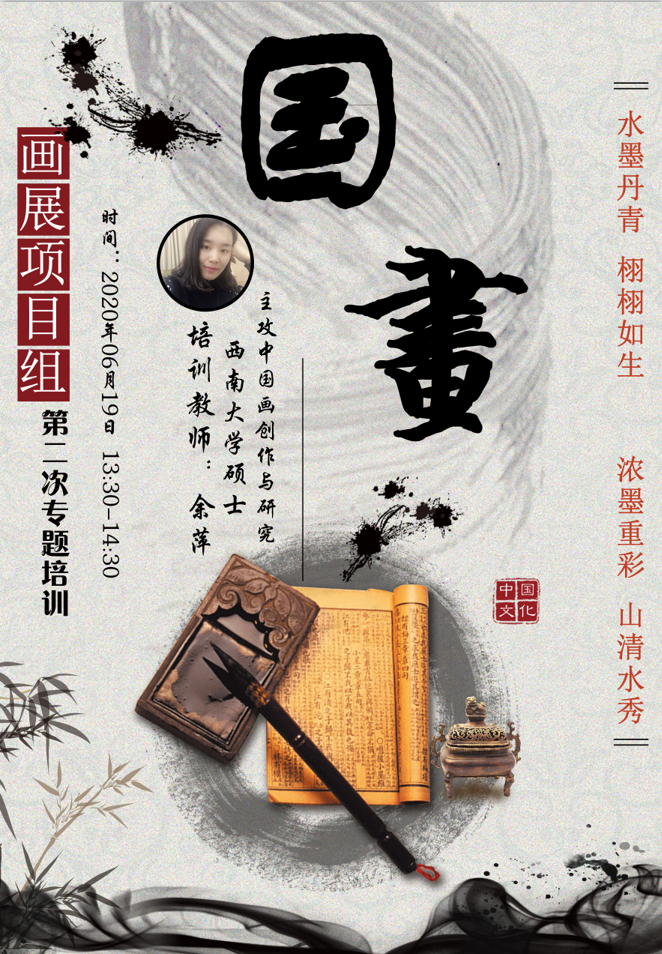 国
畫
水墨丹青 栩栩如生
浓墨重彩 山清水秀
主攻中国画创作与研究
西南大学硕士
培训教师：余萍
时间：2020年06月19日 13:30-14:30
画展项目组
第二次专题培训
中国
文化